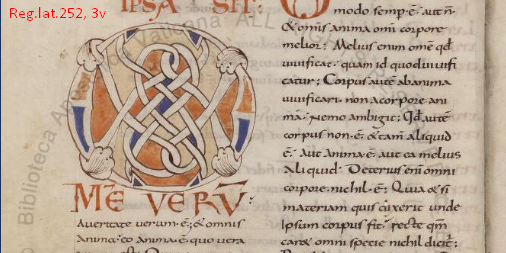 Reg.lat.252, 3v
IPSA SIT:
ME VERU:
A ueritate uerum e; & omnis
Anima eo anima e; quo uera
modo semp e. aut n
& omis anima omi corpore
melior; Melius enim ome qd
uiuificat. quam id quod uiuifi
catur; Corpus aute abanima
uiuificari. non a corpore ani
ma. Nemo ambigit; Qd aute
corpus non e. & tam aliquid
e. Aut anima e. aut ea melius
Aliquid. Deterius eni omni
corpore. nichil e; Quia & si
materiam quis dixerit unde
Ipsum corpus fit. recte qm
caret omni specie nichil dicit;